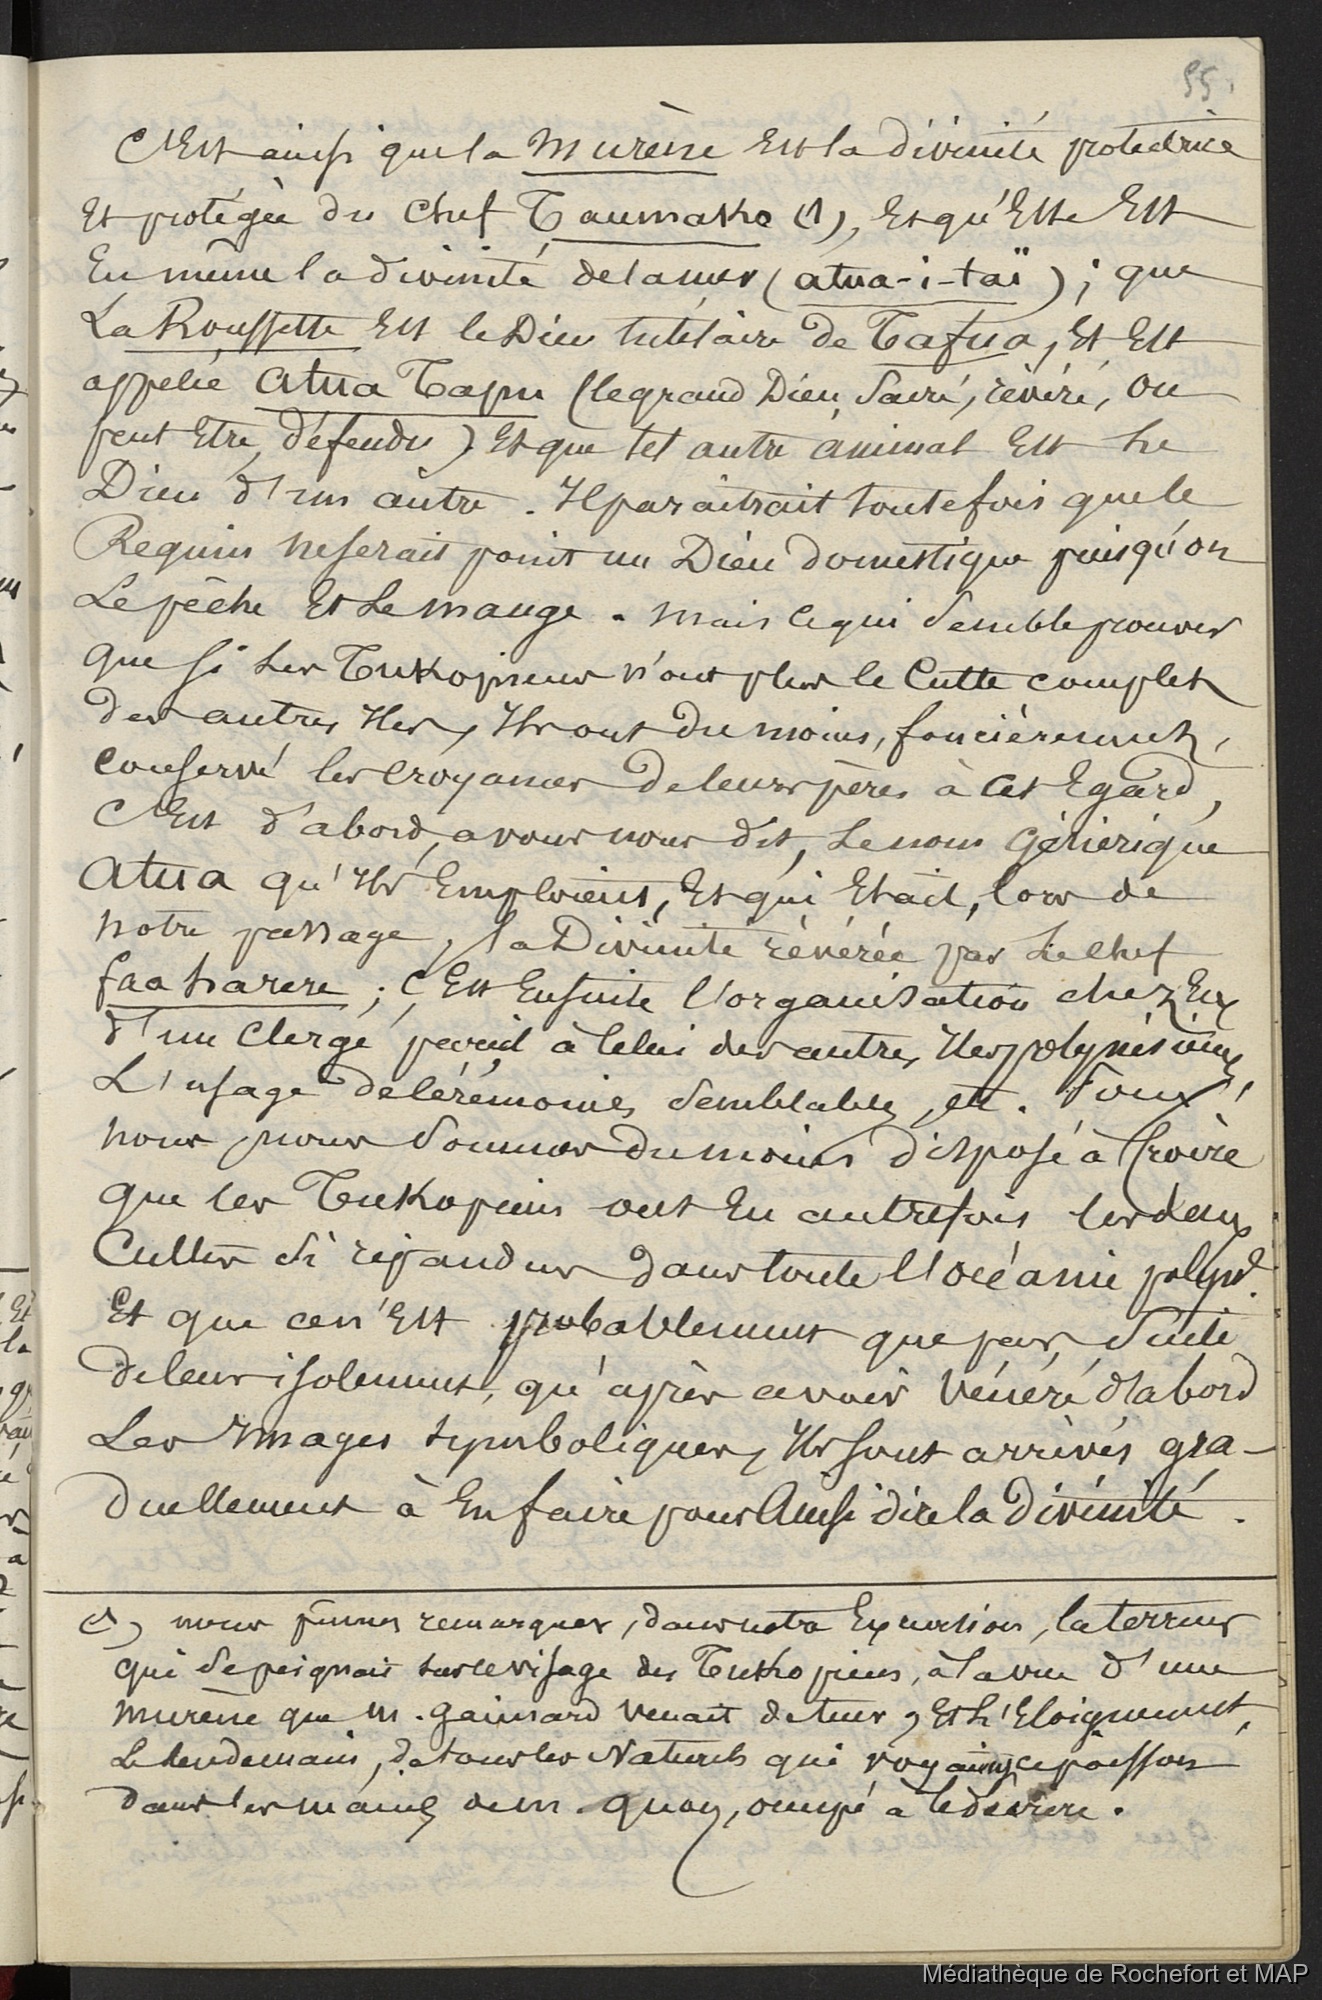 55.
C'Est ainsi que la Murène Est la divinité protectrice
Et protégée du Chef Taumako (1), Et qu'Elle Est
En même la divinité de la mer (atua-i-taï) ; que
La Roussette Est le Dieu tutélaire de Tafua, Et Est
appelée Atua Tapu (le grand Dieu, Sacré, révéré, ou
peut Etre, défendu) Et que tel autre animal Est le
Dieu d'un autre. Il paraîtrait toutefois que le
Requin ne serait point un Dieu domestique puisqu'on
Le pêche Et Le mange. Mais ce qui Semble prouver
que si Les Tukopiens n'ont plus le Culte complet
des autres Iles, Ils ont du moins, foncièrement,
conservé les croyances de leurs pères à cet Egard,
C'Est d'abord, avons nous dit, Le nom générique
Atua qu'Ils Emploient, Et qui Etait, lors de
notre passage, la Divinité révérée par Le chef
faaharere ; C'Est Ensuite l'organisation chez Eux
d'un Clergé pareil à Celui des autres Iles polynésiennes
L'usage de Cérémonies Semblables, etc. Pour
nous, nous Sommes du moins disposé à Croire
que les Tukopiens ont Eu autrefois les deux
Cultes Si répandus dans toute l'océanie polynd.
Et que ce n'Est probablement que par Suite
de leur isolement, qu'après avoir Vénéré d'abord
Les Images Symboliques, Ils sont arrivés gra-
duellement à En faire pour Ainsi dire la Divinité.
(1) nous pûmes remarquer, dans notre Excursion, la terreur
qui Se peignait sur le visage des Tukopiens, à la vue d'une
Murène que M. Gaimard Venait de tuer, Et L'Eloignement,
Le Lendemain, de tous les Naturels qui voyaient ce poisson
dans les mains de M. Quoy, occupé à le décrire.
Médiathèque de Rochefort et MAP